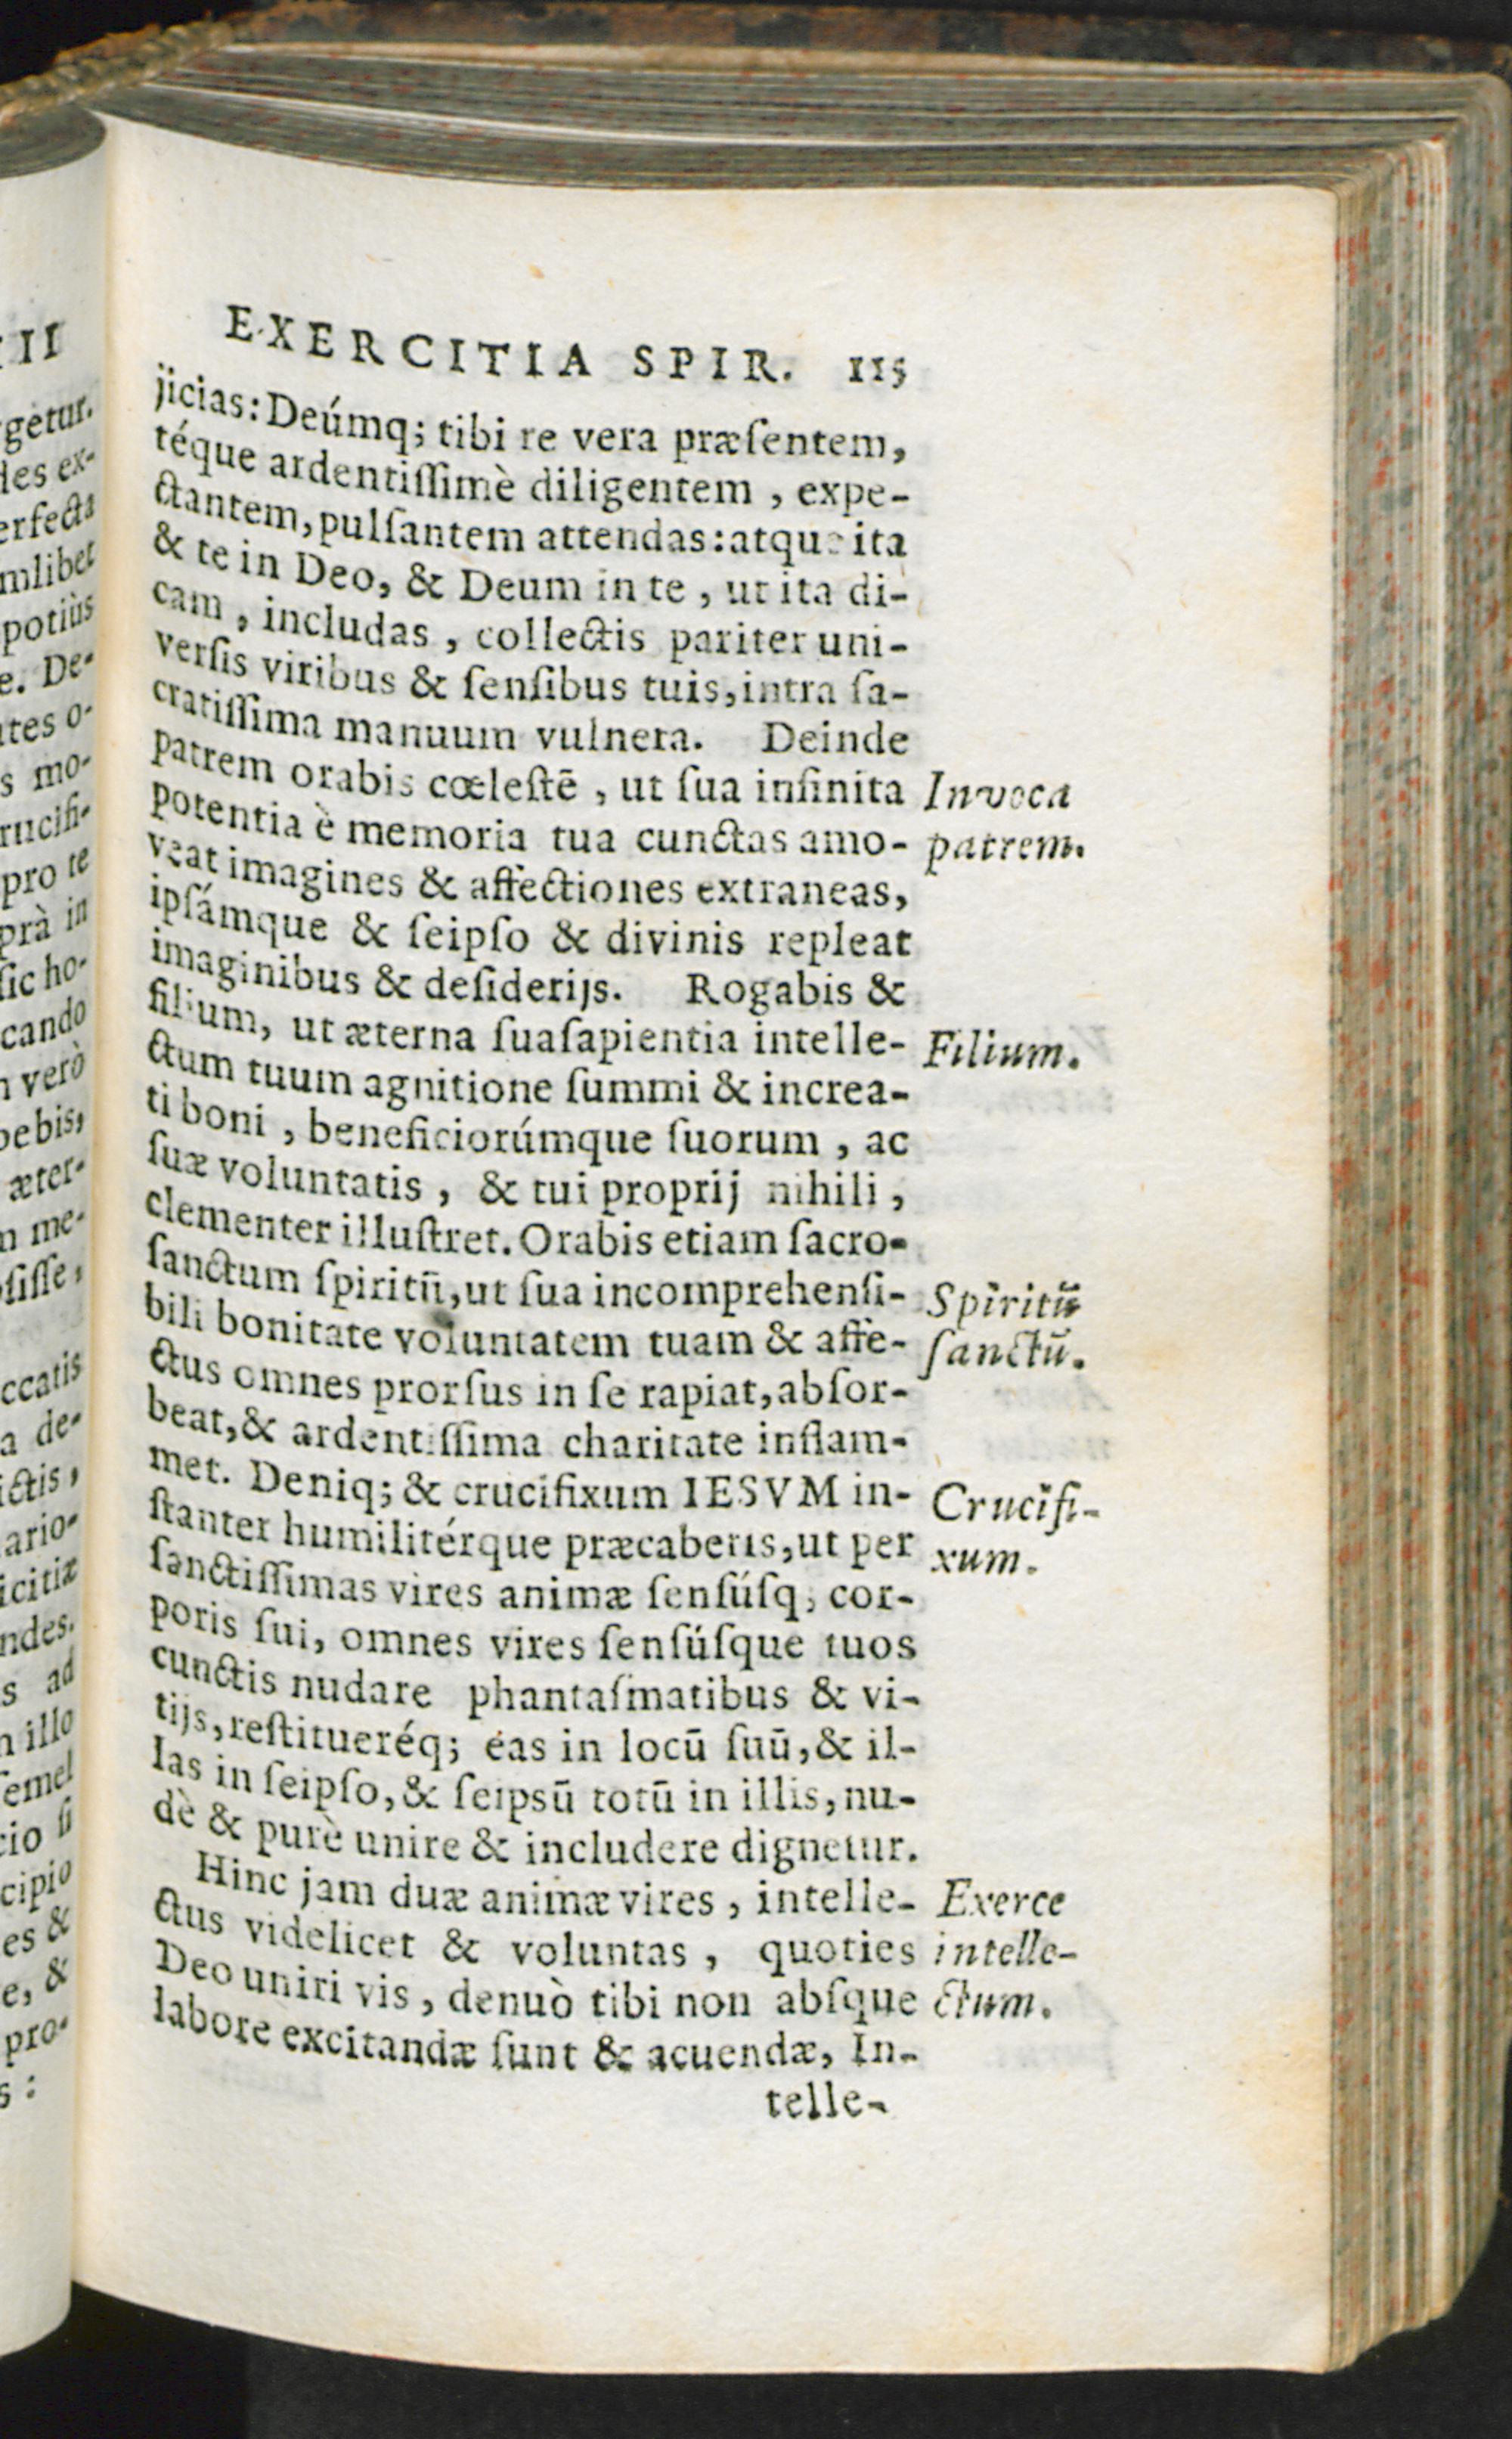 EXERCITIA SPIR. 115
jicias: Deúmq; tibi re vera præſentem,
téque ardentiſſimè diligentem, expe-
ctantem, pulſantem attendas: atque ita
& te in Deo, & Deum in te, ut ita di-
cam, includas, collectis pariter uni-
verſis viribus & ſenſibus tuis, intra ſa-
cratiſſima manuum vulnera. Deinde
patrem orabis cœleſtē, ut ſua infinita
Invoca
potentia è memoria tua cunctas amo-
patrem.
veat imagines & affectiones extraneas,
ipſámque & ſeipſo & divinis repleat
imaginibus & deſiderijs. Rogabis &
filium, ut æterna ſua ſapientia intelle-
Filium.
ctum tuum agnitione ſummi & increa-
ti boni, beneficiorúmque ſuorum, ac
ſuæ voluntatis, & tui proprij nihili,
clementer illuſtret. Orabis etiam ſacro-
ſanctum ſpiritū, ut ſua incomprehenſi-
Spiritū
bili bonitate voluntatem tuam & affe-
ſanctū.
ctus omnes prorſus in ſe rapiat, abſor-
beat, & ardentiſſima charitate inflam-
met. Deniq; & crucifixum IESVM in-
Crucifi-
ſtanter humilitérque præcaberis, ut per
xum.
ſanctiſſimas vires animæ ſenſúſq; cor-
poris ſui, omnes vires ſenſúſque tuos
cunctis nudare phantaſmatibus & vi-
tijs, reſtitueréq; eas in locū ſuū, & il-
las in ſeipſo, & ſeipsū totū in illis, nu-
dè & purè unire & includere dignetur.
Hinc jam duæ animæ vires, intelle-
Exerce
ctus videlicet & voluntas, quoties
intelle-
Deo uniri vis, denuò tibi non abſque
ctum.
labore excitandæ ſunt & acuendæ, In-
telle-